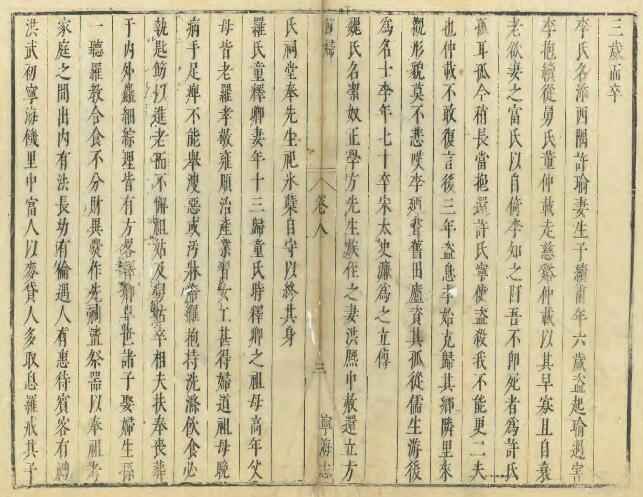 三歲而卒
李氏名添西隅許瑜妻生子續甫年六歲盗起瑜遇害
李抱續從舅氏董仲載走慈谿仲載以其早寡且自衰
老欲妻之富氏以自倚李知之曰吾不即死者為許氏
孤耳孤今稍長當抱還許氏寧使盗殺我不能更二夫
也仲載不敢復言後三年盗息李始克歸其鄉隣里來
觀形貌莫不悲嘆李廼舊田廬資其孤從儒生游後
為名士李年七十卒宋太史濂為之立傳
魏氏名潔奴正學方先生族侄之妻洪熙中赦還立方
節婦
卷八
三
寧海志
氏祠堂奉先生祀氷蘗自守以終其身
羅氏童釋卿妻年十三歸童氏時釋卿之祖母高年父
母皆老羅孝敬雍順治產業習女工甚得婦道祖母晚
病手足痺不能舉溲惡或汚牀席羅抱持洗滌飲食必
執匙筯以進老而不懈祖姑及舅姑卒相夫扶奉喪葬
于内外麤細綜理皆有方畧釋卿早世諸子娶婦生孫
一聽羅教令食不分財異爨作先祠置祭器以奉祖考
家庭之間出内有法長幼有倫遇人有惠待賓客有禮
洪武初寧海饑里中富人以麥貸人多取息羅戒其子